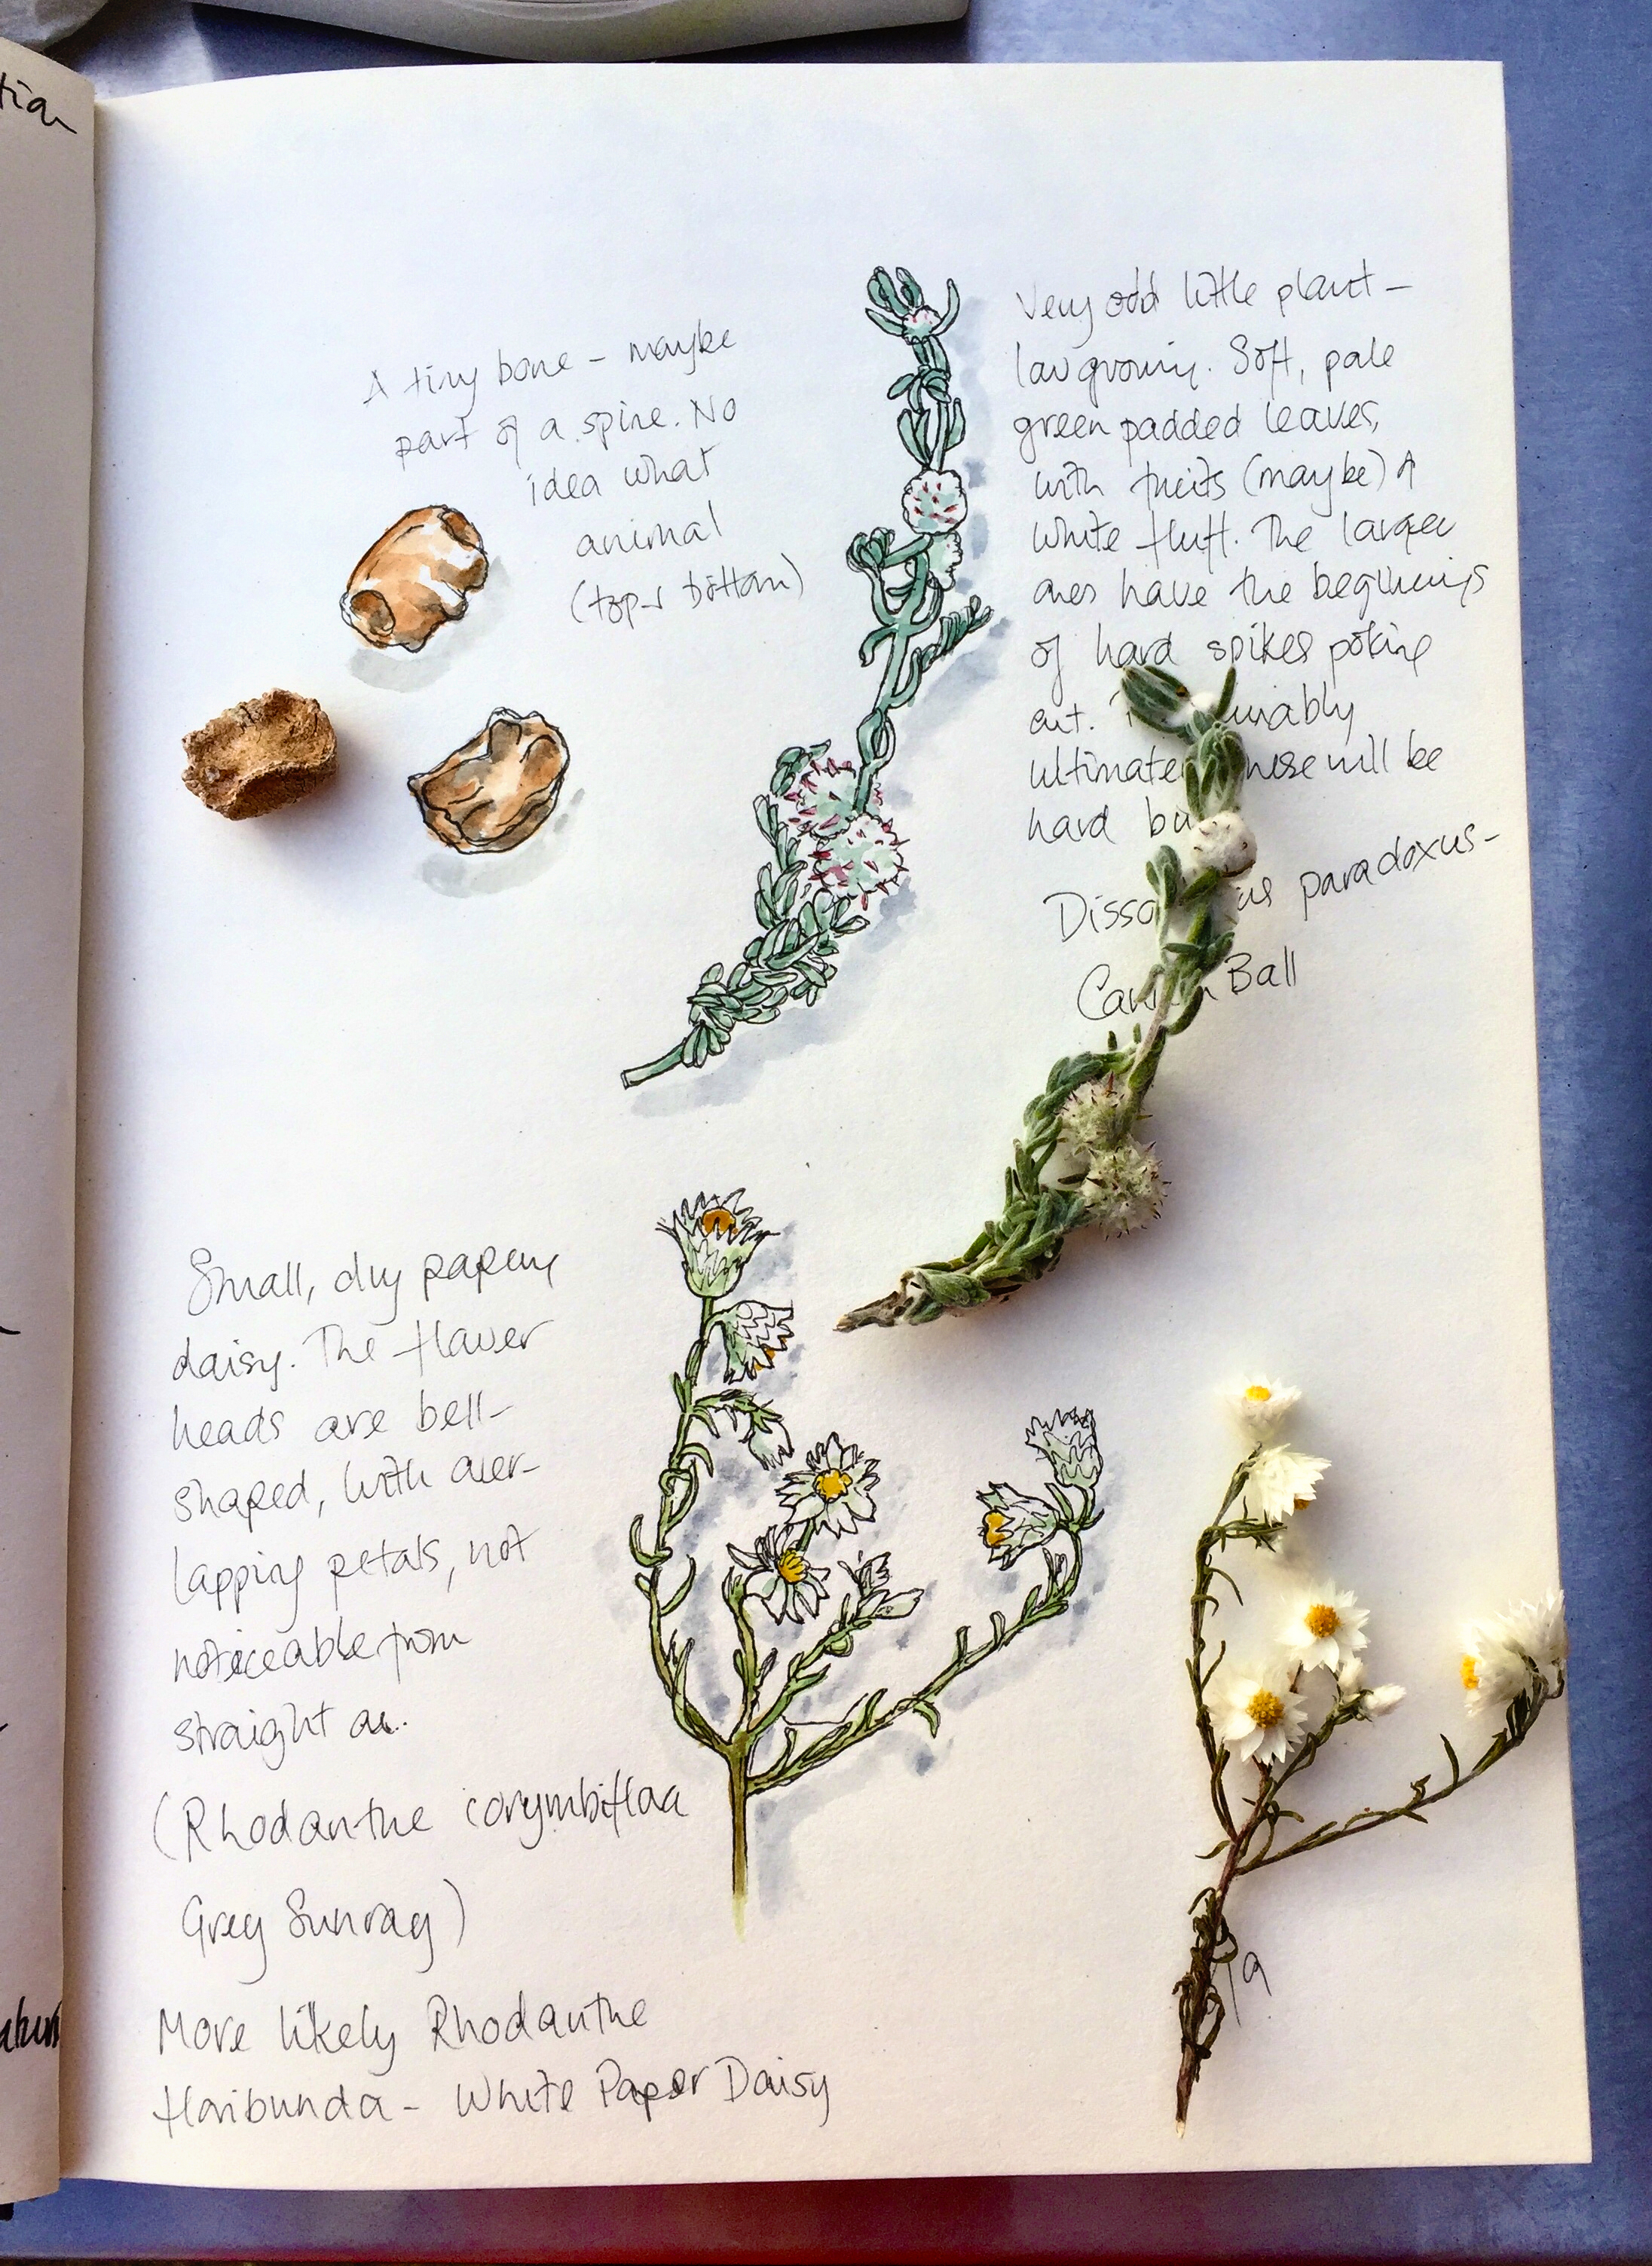 tian
A tiny bone – maybe
part of a spine. No
idea what
animal
(top & bottom)
Very odd little plant –
low growing. Soft, pale
green padded leaves,
with fruits (maybe) of
white fluff. The larger
ones have the beginnings
of hard spikes poking
out. unably
ultimate hese will be
hard bu
Disso us paradoxus –
Can n Ball
Small, dry papery
daisy. The flower
heads are bell-
shaped, with over-
lapping petals, not
noticeable from
straight on.
(Rhodanthe corymbiflora
Grey Sunray)
More likely Rhodanthe
floribunda – White Paper Daisy
19